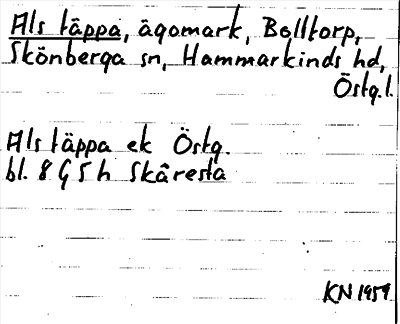 Als täppa, ägomark, Bolltorp,
Skönberga sn, Hammarkinds hd,
Östg.l.
Als täppa ek Östg.
bl. 8 G 5 h Skåresta
KN 1959